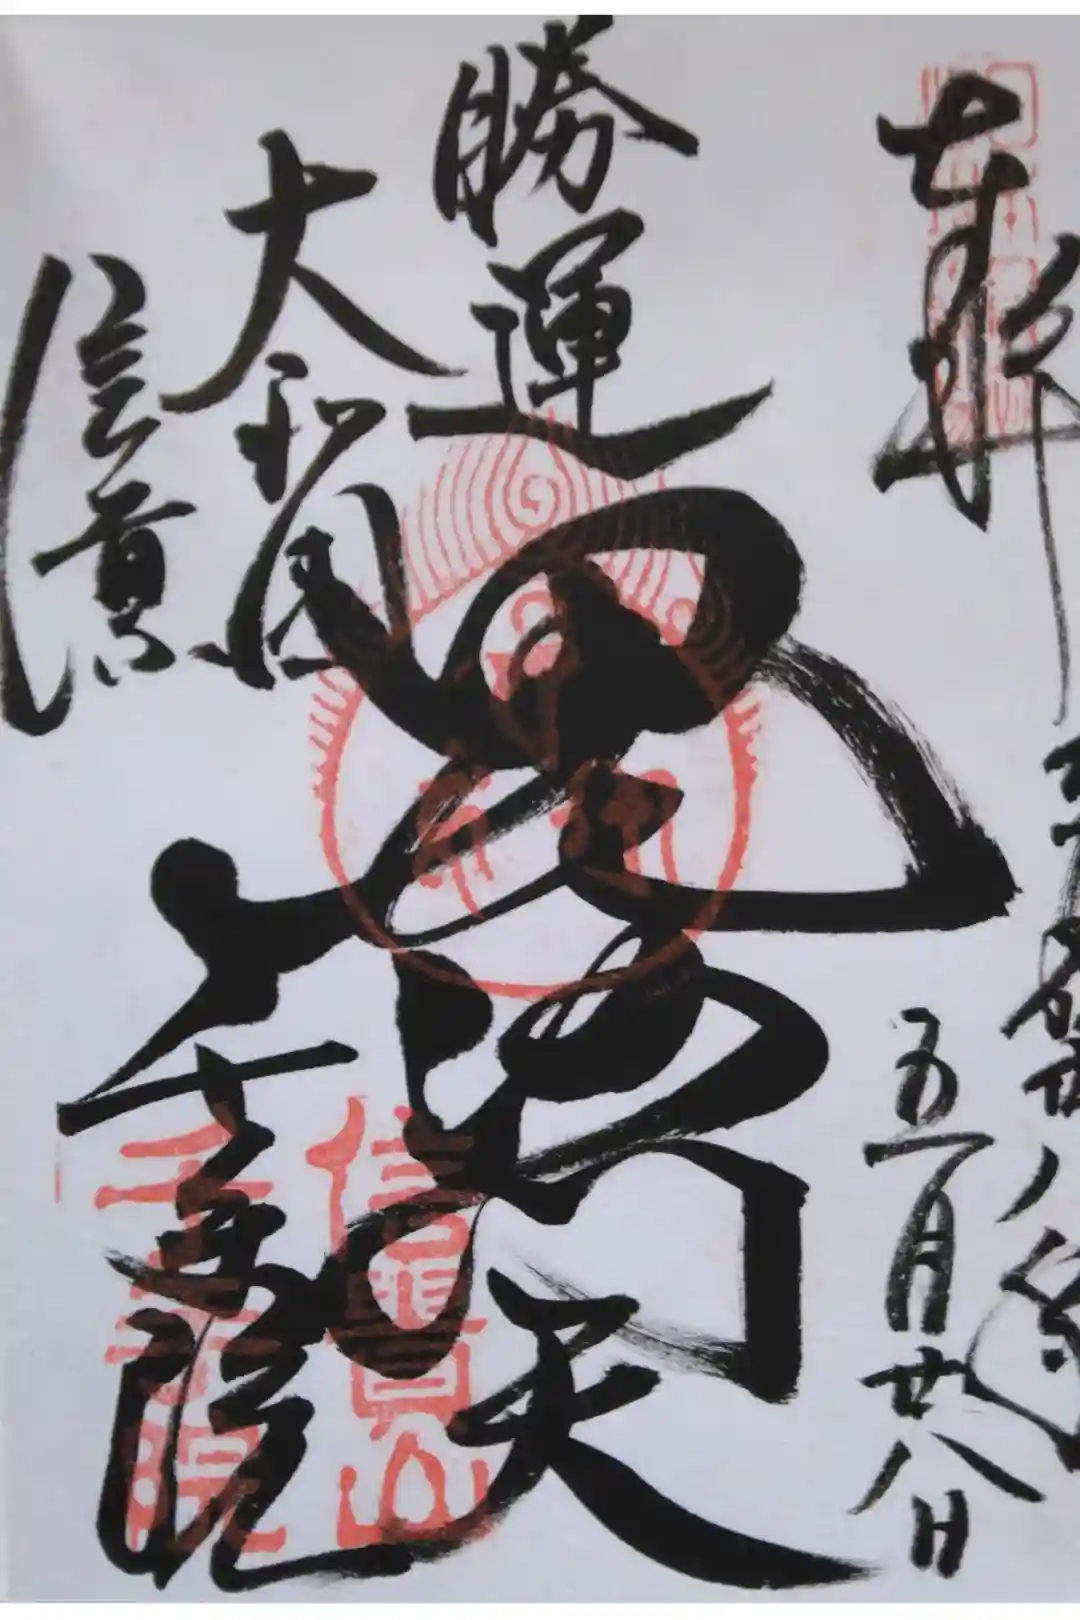 奉拝
五月廿八日
勝運
毘沙門天
大和國
信貴山
千手院
信貴山
千手院